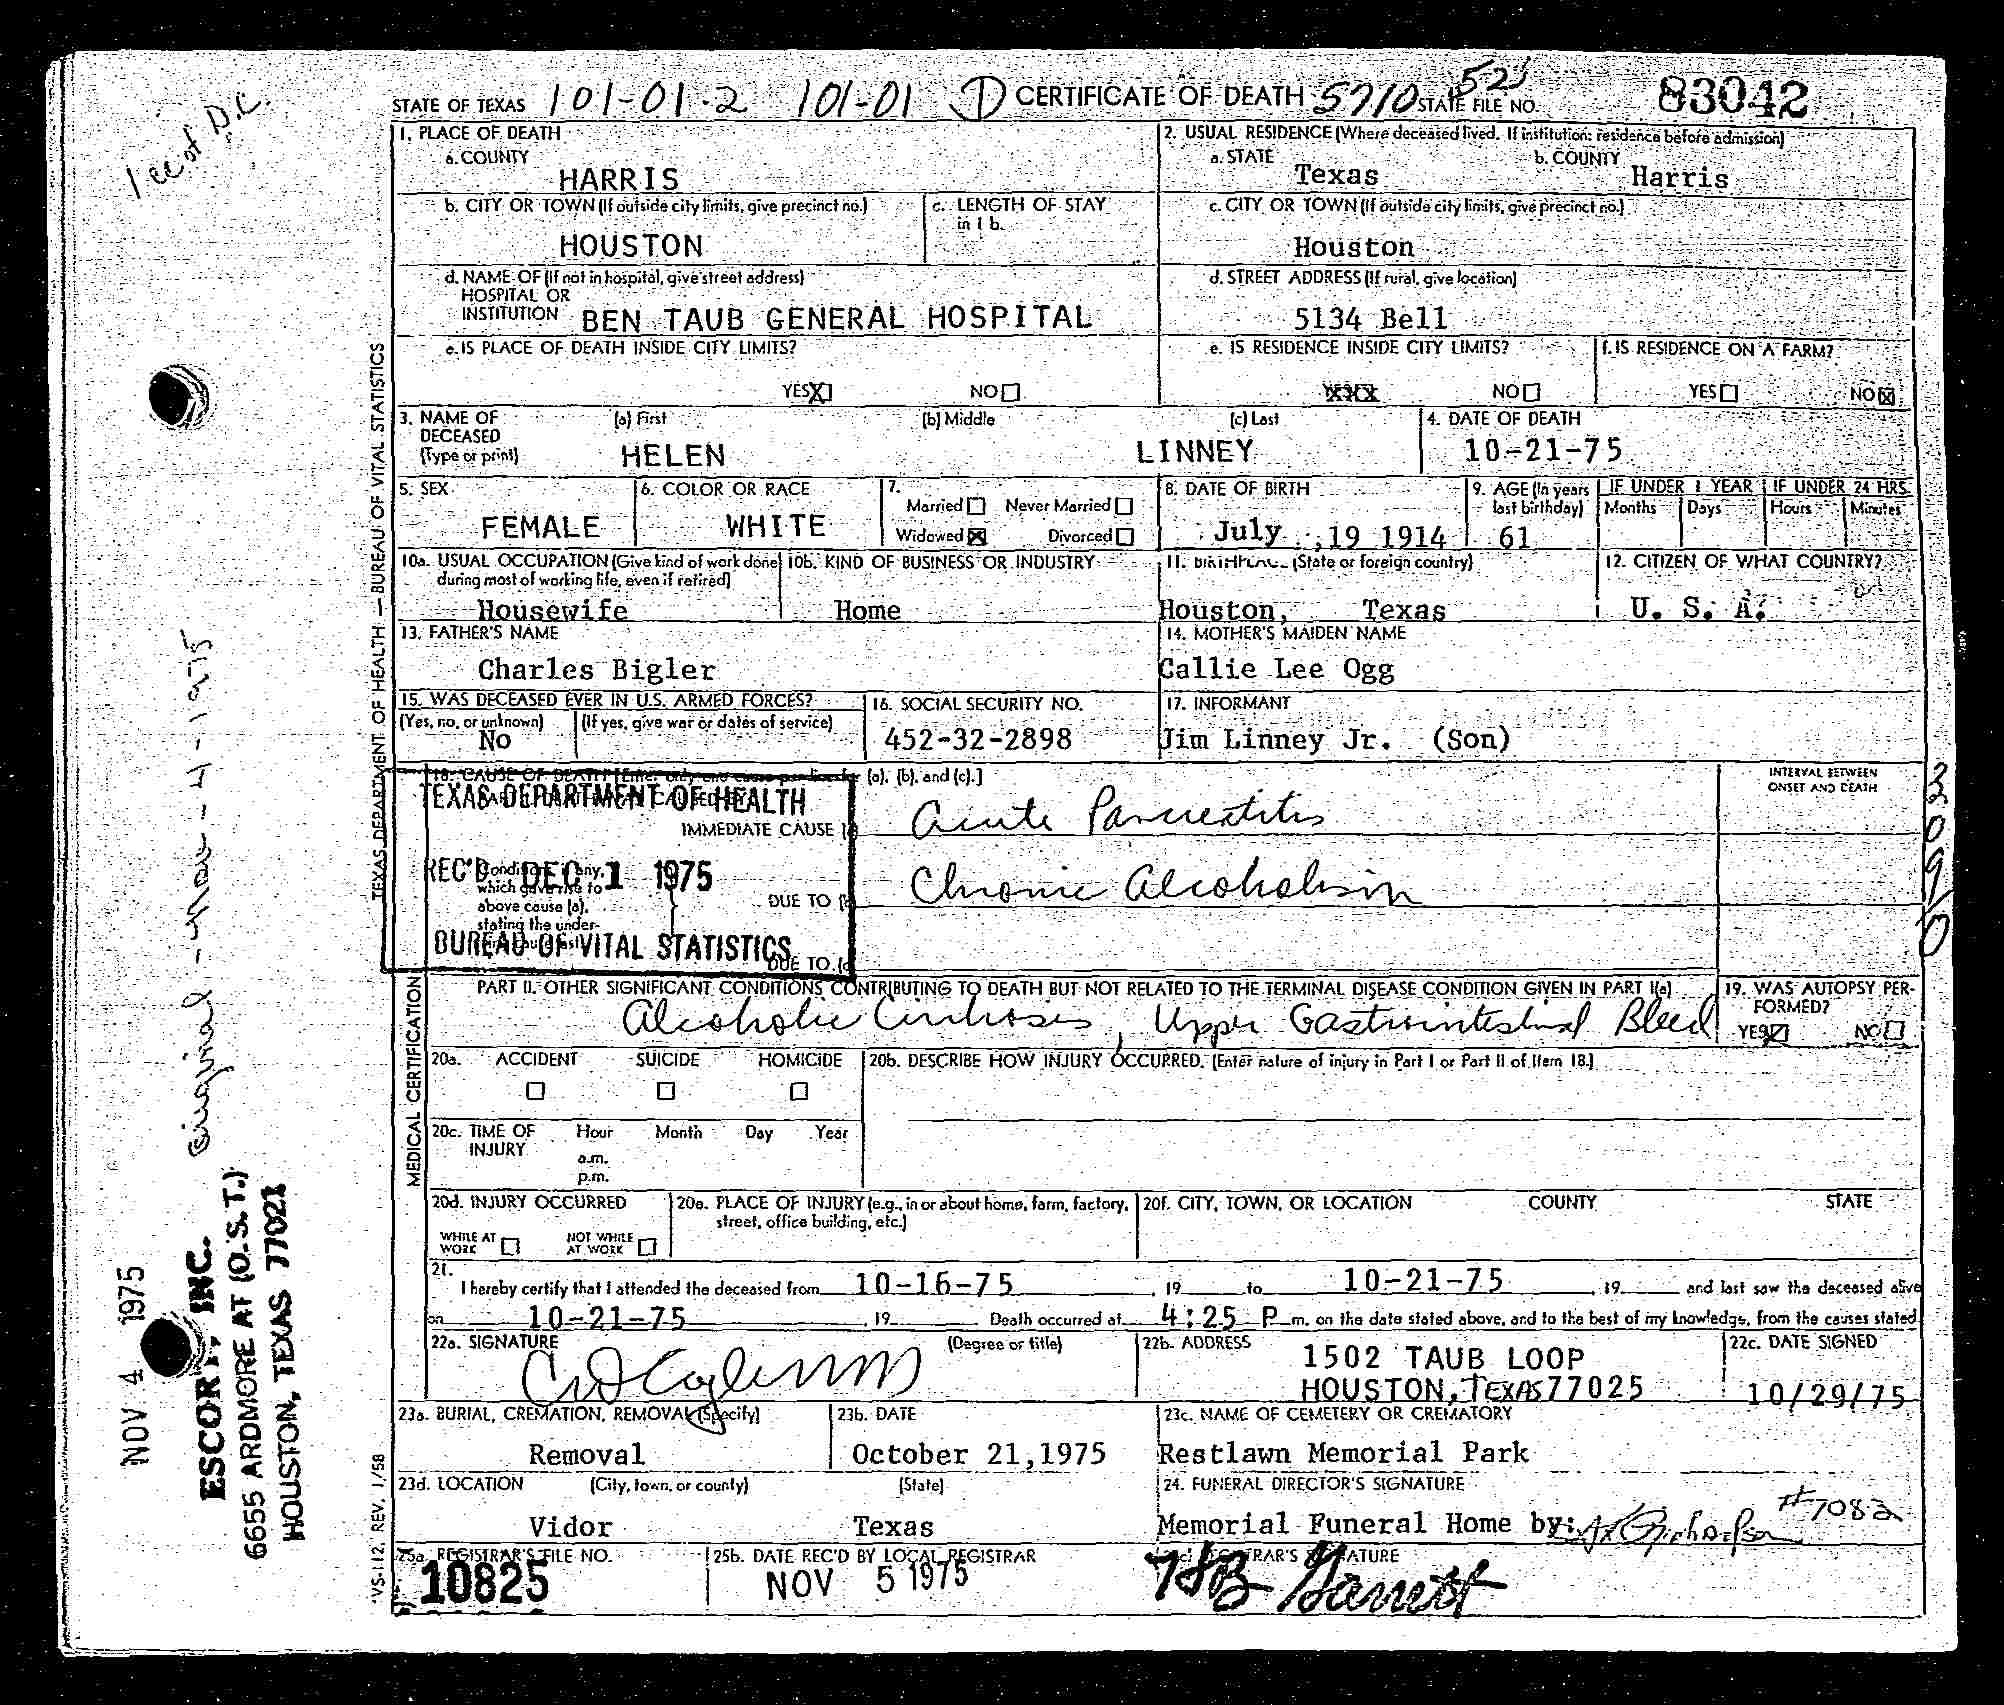 1 cc of D.C.
STATE OF TEXAS 101-01-2 101-01 1 CERTIFICATE OF DEATH 5710 52 STATE FILE NO. 83042
1. PLACE OF DEATH
a. COUNTY
HARRIS
2. USUAL RESIDENCE (Where deceased lived. If institution: residence before admission)
a. STATE b. COUNTY
Texas Harris
b. CITY OR TOWN (If outside city limits, give precinct no.) c. LENGTH OF STAY in 1 b.
HOUSTON
c. CITY OR TOWN (If outside city limits, give precinct no.)
Houston
d. NAME OF (If not in hospital, give street address)
HOSPITAL OR
INSTITUTION BEN TAUB GENERAL HOSPITAL
d. STREET ADDRESS (If rural, give location)
5134 Bell
e. IS PLACE OF DEATH INSIDE CITY LIMITS?
YES X NO
e. IS RESIDENCE INSIDE CITY LIMITS? f. IS RESIDENCE ON A FARM?
NO YES NO X
3. NAME OF DECEASED (Type or print) (a) First (b) Middle (c) Last
HELEN LINNEY
4. DATE OF DEATH
10-21-75
5. SEX
FEMALE
6. COLOR OR RACE
WHITE
7. Married Never Married
Widowed X Divorced
8. DATE OF BIRTH
July 19 1914
9. AGE (In years last birthday) IF UNDER 1 YEAR IF UNDER 24 HRS.
Months Days Hours Minutes
61
10a. USUAL OCCUPATION (Give kind of work done during most of working life, even if retired)
Housewife
10b. KIND OF BUSINESS OR INDUSTRY
Home
11. BIRTHPLACE (State or foreign country)
Houston, Texas
12. CITIZEN OF WHAT COUNTRY?
U. S. A.
13. FATHER'S NAME
Charles Bigler
14. MOTHER'S MAIDEN NAME
Callie Lee Ogg
15. WAS DECEASED EVER IN U.S. ARMED FORCES?
(Yes, no, or unknown) (If yes, give war or dates of service)
No
16. SOCIAL SECURITY NO.
452-32-2898
17. INFORMANT
Jim Linney Jr. (Son)
18. CAUSE OF DEATH [Enter only one cause per line for (a), (b), and (c).]
INTERVAL BETWEEN ONSET AND DEATH
TEXAS DEPARTMENT OF HEALTH
REC'D DEC 1 1975
BUREAU OF VITAL STATISTICS
IMMEDIATE CAUSE (a) Acute Pancreatitis
Conditions, if any, which gave rise to above cause (a), stating the under-
DUE TO (b) Chronic Alcoholism
DUE TO (c)
30910
PART II. OTHER SIGNIFICANT CONDITIONS CONTRIBUTING TO DEATH BUT NOT RELATED TO THE TERMINAL DISEASE CONDITION GIVEN IN PART I(a)
Alcoholic Cirrhosis, Upper Gastrointestinal Bleed
19. WAS AUTOPSY PERFORMED?
YES NO
20a. ACCIDENT SUICIDE HOMICIDE
20b. DESCRIBE HOW INJURY OCCURRED. (Enter nature of injury in Part I or Part II of Item 18.)
20c. TIME OF INJURY Hour Month Day Year
a.m.
p.m.
20d. INJURY OCCURRED
WHILE AT WORK NOT WHILE AT WORK
20e. PLACE OF INJURY (e.g., in or about home, farm, factory, street, office building, etc.)
20f. CITY, TOWN, OR LOCATION COUNTY STATE
21.
I hereby certify that I attended the deceased from 10-16-75, 19 to 10-21-75, 19 and last saw the deceased alive
on 10-21-75, 19 Death occurred at 4:25 P m. on the date stated above, and to the best of my knowledge, from the causes stated
22a. SIGNATURE (Degree or title)
22b. ADDRESS
1502 TAUB LOOP
HOUSTON, TEXAS 77025
22c. DATE SIGNED
10/29/75
23a. BURIAL, CREMATION, REMOVAL (Specify)
Removal
23b. DATE
October 21,1975
23c. NAME OF CEMETERY OR CREMATORY
Restlawn Memorial Park
23d. LOCATION (City, town, or county) (State)
Vidor Texas
24. FUNERAL DIRECTOR'S SIGNATURE
Memorial Funeral Home by: #7082
25a. REGISTRAR'S FILE NO.
10825
25b. DATE REC'D BY LOCAL REGISTRAR
NOV 5 1975
25c. REGISTRAR'S SIGNATURE
Garrett
TEXAS DEPARTMENT OF HEALTH — BUREAU OF VITAL STATISTICS
MEDICAL CERTIFICATION
VS-112, REV. 1/58
original - Nov - 4 - 1975
NOV 4 1975
ESCORT, INC.
6655 ARDMORE AT (O.S.T.)
HOUSTON, TEXAS 77021